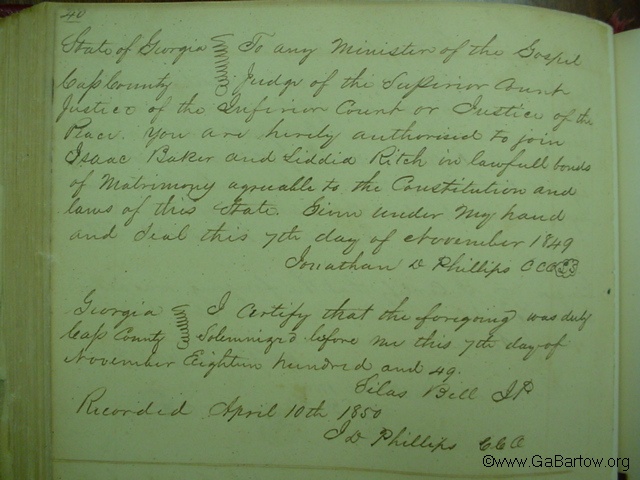 40
State of Georgia To any Minister of the Gospel
Cass County Judge of the Superior Court
Justice of the Inferior Court or Justice of the
Peace. You are hereby authorised to join
Isaac Baker and Liddia Ritch in lawfull bonds
of Matrimony agreeable to the Constitution and
laws of this State. Given under my hand
and Seal this 7th day of November 1849
Jonathan D Phillips C C O
Georgia I Certify that the foregoing was duly
Cass County Solemnized before me this 7th day of
November Eighteen hundred and 49.
Silas Bell JP
Recorded April 10th 1850
J D Phillips C C O
©www.GaBartow.org